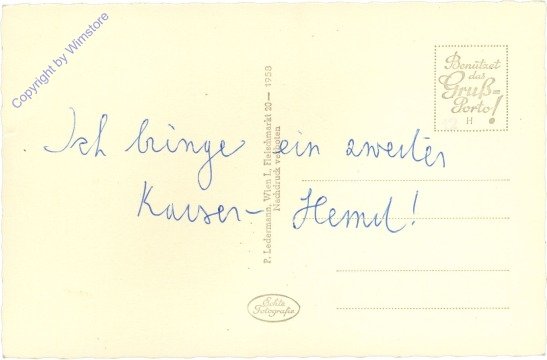 Copyright by Wimstore
Benützet
das
Gruß=
Porto!
H
Ich bringe ein zweites
Kaiser- Hemd!
P. Ledermann, Wien I., Fleischmarkt 20 — 1953
Nachdruck verboten
Echte
Fotografie